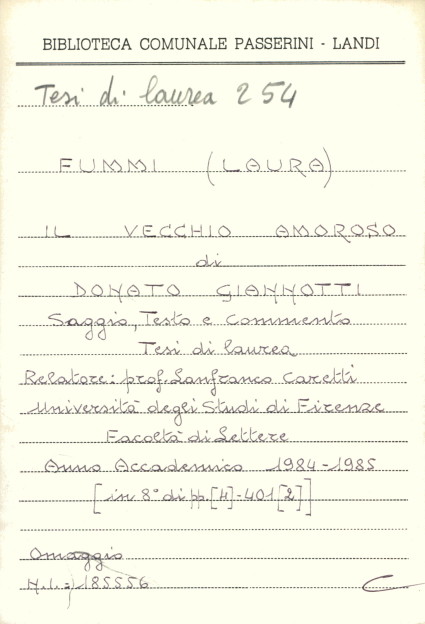 BIBLIOTECA COMUNALE PASSERINI - LANDI
Tesi di laurea 254
FUMMI (LAURA)
IL VECCHIO AMOROSO
di
DONATO GIANNOTTI
Saggio, Testo e Commento
Tesi di laurea
Relatore: prof. Lanfranco Caretti
Università degli Studi di Firenze
Facoltà di Lettere
Anno Accademico 1984-1985
[in 8° di pp. [4]-401 [2]]
Omaggio
N.i.: 185556